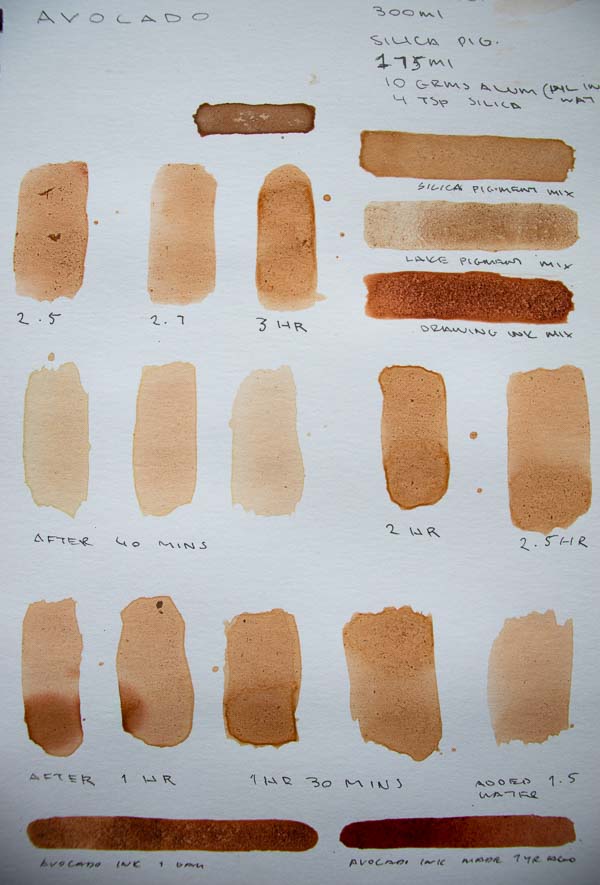 AVOCADO
300ml
SILICA PIG.
175ml
10 GRMS ALUM (
4 TSP SILICA WAT
SILICA PIGMENT MIX
LAKE PIGMENT MIX
DRAWING INK MIX
2.5 2.7 3 HR
AFTER 40 MINS
2 HR 2.5HR
AFTER 1 HR 1HR 30 MINS
ADDED 1.5
WATER
AVOCADO INK 1 DAY
AVOCADO INK MADE 1YR AGO